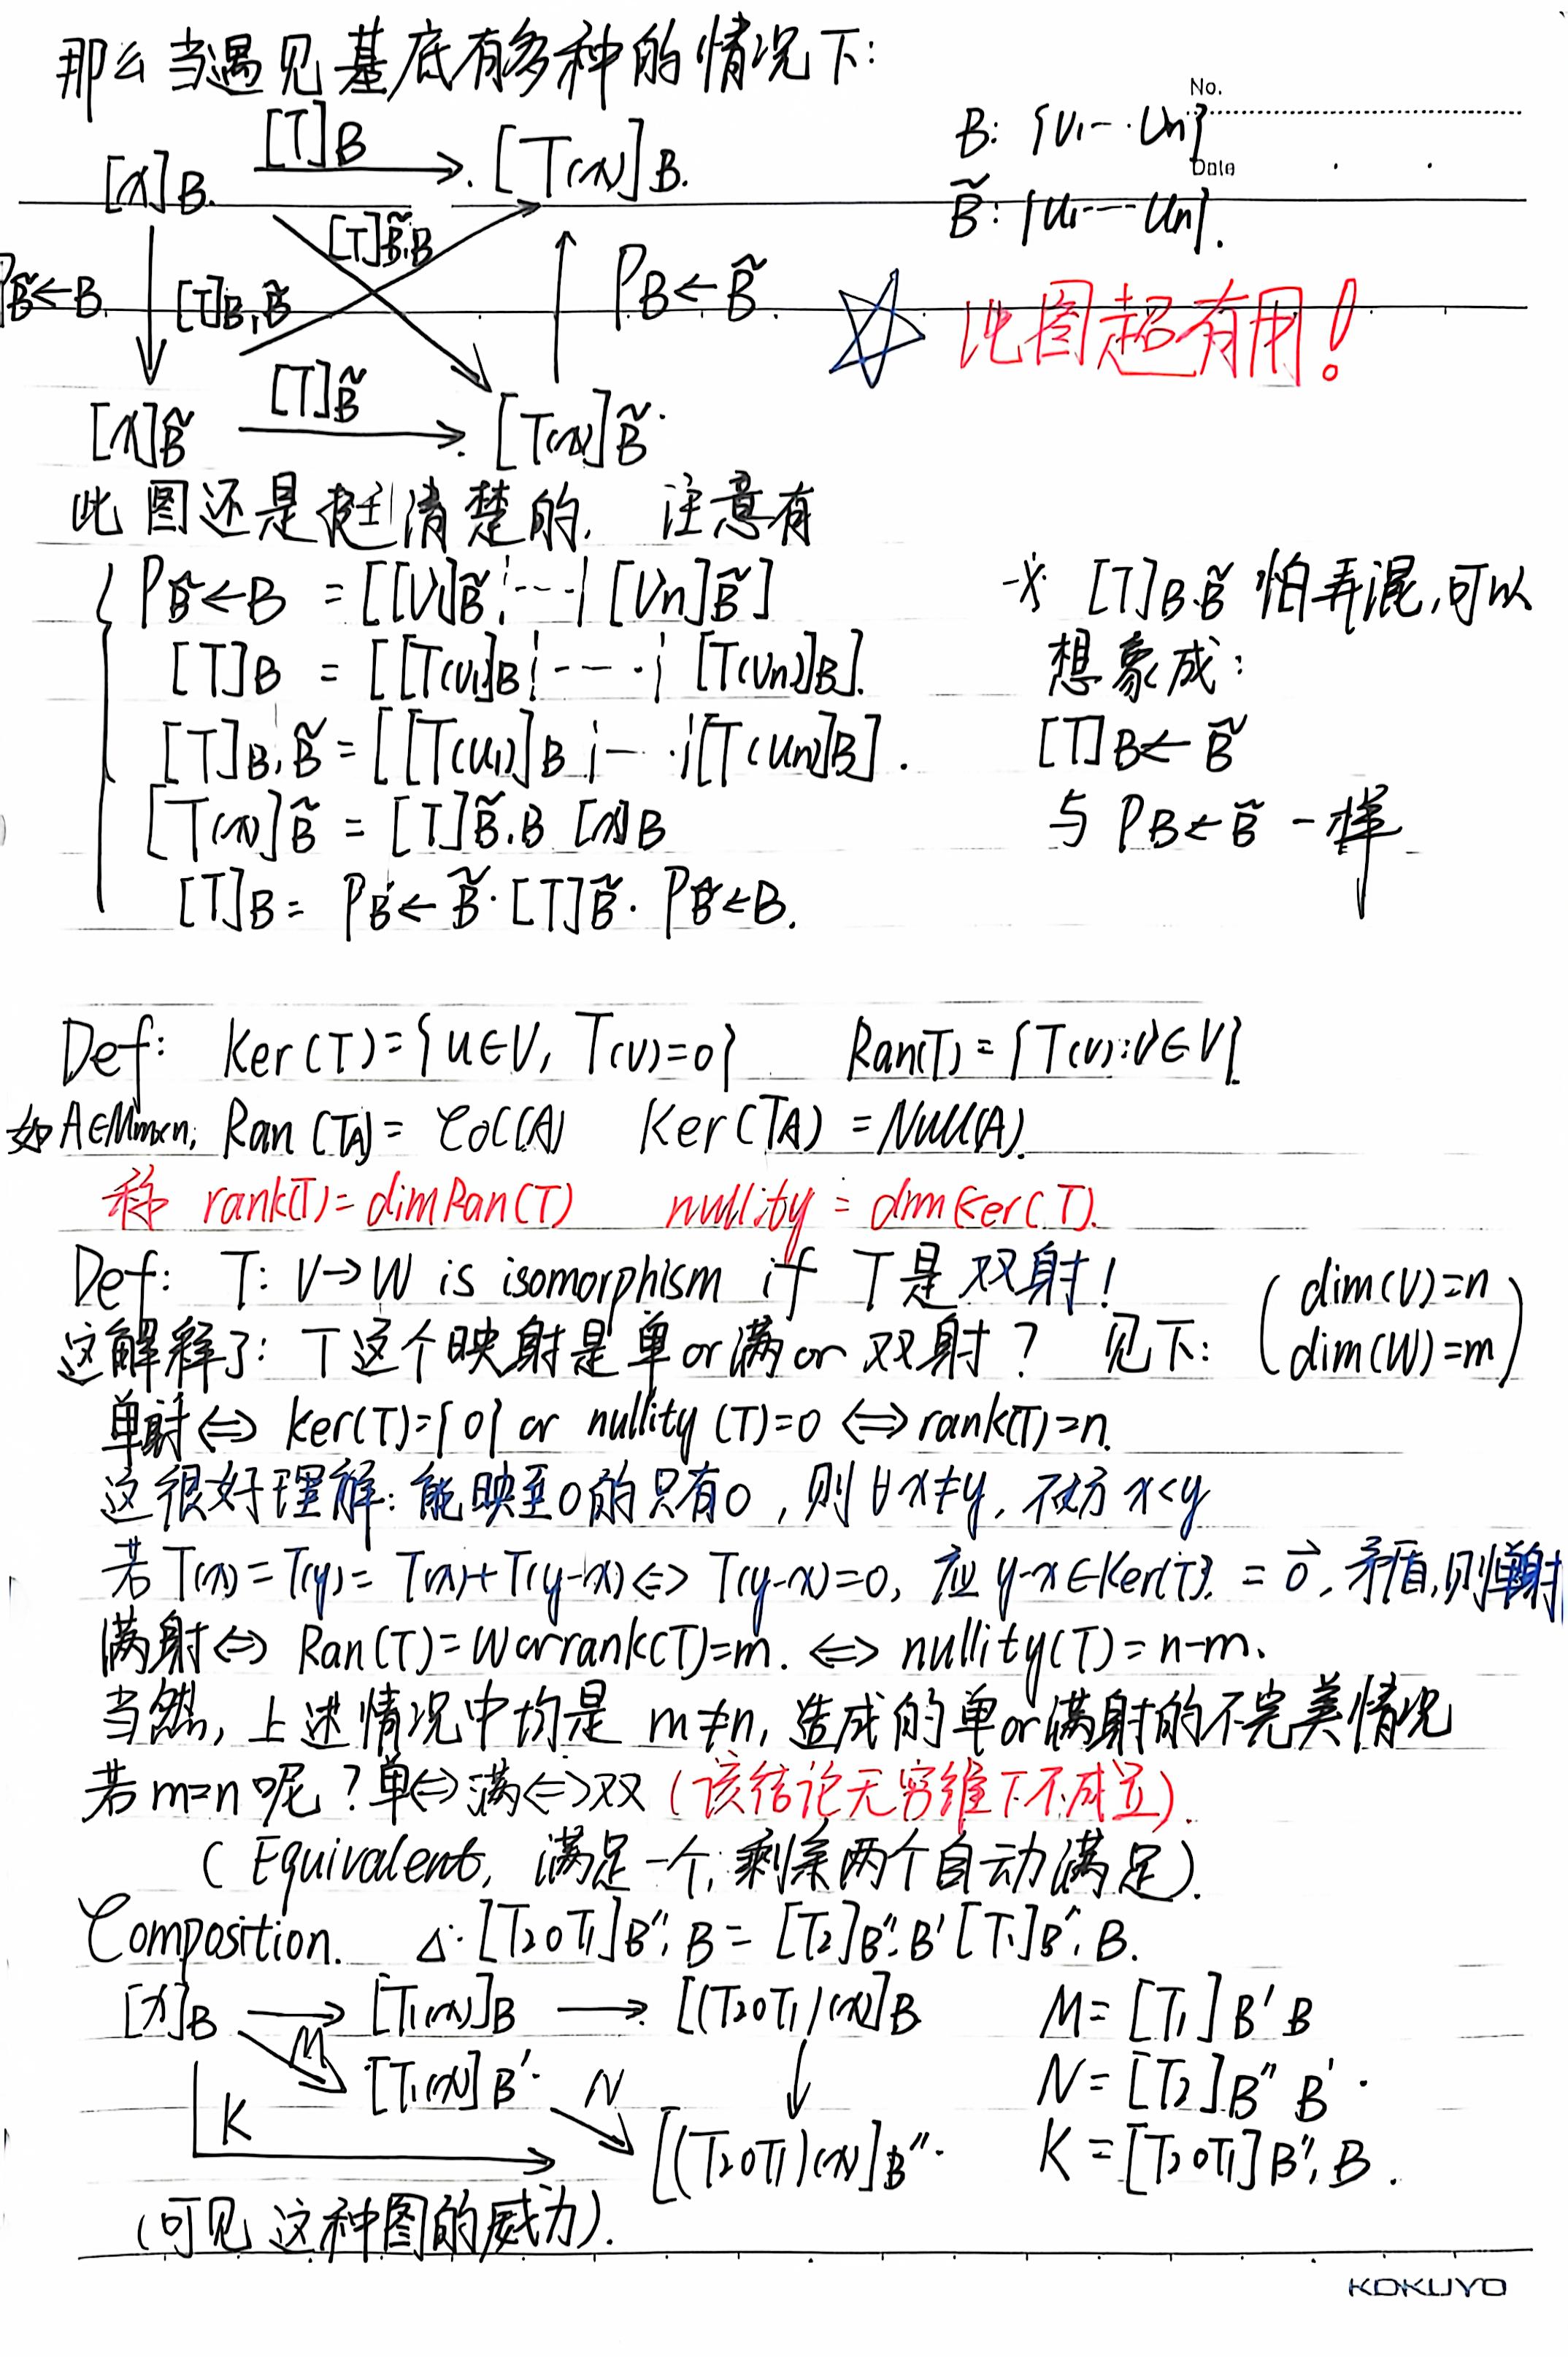 那么当遇见基底有多种的情况下:
No.
Date
B: {v₁-··vₙ}
B̃: {u₁----uₙ}.
[x]B. [T]B → [T(x)]B.
[T]B̃,B
P B̃←B [T]B,B̃ P B←B̃
☆ 此图超有用!
[x]B̃ [T]B̃ → [T(x)]B̃
此图还是挺清楚的, 注意有
P B̃←B = [[v₁]B̃ ¦---¦ [vₙ]B̃]
[T]B = [[T(v₁)]B ¦----¦ [T(vₙ)]B].
[T]B,B̃ = [[T(u₁)]B ¦--·¦ [T(uₙ)]B].
[T(x)]B̃ = [T]B̃,B [x]B
[T]B = P B←B̃ · [T]B̃ · P B̃←B.
※ [T]B,B̃ 怕弄混,可以
想象成:
[T]B←B̃
与 P B←B̃ 一样
Def: Ker(T)={u∈V, T(v)=0} Ran(T)={T(v):v∈V}
如A∈Mm×n, Ran(TA)= Col(A) Ker(TA)=Null(A).
称 rank(T)=dimRan(T) nullity = dimKer(T).
Def: T: V→W is isomorphism if T是双射!
(dim(V)=n
dim(W)=m)
这解释了: T这个映射是单or满or双射? 见下:
单射⇔ Ker(T)={0} or nullity(T)=0 ⇔ rank(T)=n.
这很好理解: 能映至0的只有0, 则∀x≠y, 不妨x<y
若T(x)=T(y)= T(x)+T(y-x)⇔ T(y-x)=0, 应y-x∈Ker(T). = 0⃗, 矛盾,则单射
满射⇔ Ran(T)=W or rank(T)=m. ⇔ nullity(T)=n-m.
当然, 上述情况中均是 m≠n, 造成的单or满射的不完美情况
若m=n呢?单⇔满⇔双 (该结论无穷维下不成立).
( Equivalent, 满足一个,剩余两个自动满足).
Composition. Δ: [T₂∘T₁]B'',B = [T₂]B'',B' [T₁]B',B.
[x]B → [T₁(x)]B → [(T₂∘T₁)(x)]B
M [T₁(x)]B' N
K [(T₂∘T₁)(x)]B''
M= [T₁]B'B
N= [T₂]B''B'
K=[T₂∘T₁]B'',B.
(可见这种图的威力).
KOKUYO